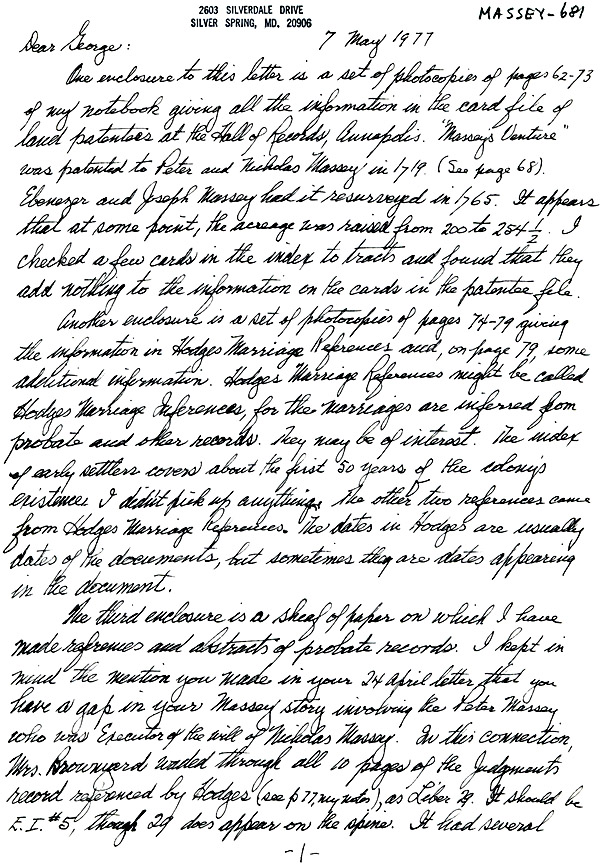 2603 SILVERDALE DRIVE
SILVER SPRING, MD. 20906
MASSEY-681
7 May 1977
Dear George:
One enclosure to this letter is a set of photocopies of pages 62-73
of my notebook giving all the information in the card file of
land patentees at the Hall of Records, Annapolis. "Massey's Venture"
was patented to Peter and Nicholas Massey in 1719. (See page 68).
Ebenezer and Joseph Massey had it resurveyed in 1765. It appears
that at some point, the acreage was raised from 200 to 254 1/2. I
checked a few cards in the index to tracts and found that they
add nothing to the information on the cards in the patentee file.
Another enclosure is a set of photocopies of pages 74-79 giving
the information in Hodges Marriage References and, on page 79, some
additional information. Hodges Marriage References might be called
Hodges Marriage Inferences, for the marriages are inferred from
probate and other records. They may be of interest. The index
of early settlers covers about the first 50 years of the colony's
existence. I didn't pick up anything. The other two references came
from Hodges Marriage References. The dates in Hodges are usually
dates of the documents, but sometimes they are dates appearing
in the document.
The third enclosure is a sheaf of paper on which I have
made references and abstracts of probate records. I kept in
mind the mention you made in your 24 April letter that you
have a gap in your Massey story involving the Peter Massey
who was Executor of the will of Nicholas Massey. In this connection,
Mrs. Brownyard waded through all 10 pages of the Judgments
record referenced by Hodges (see p 77 my notes), as Liber 29. It should be
E.I. #5, though 29 does appear on the spine. It had several
-1-